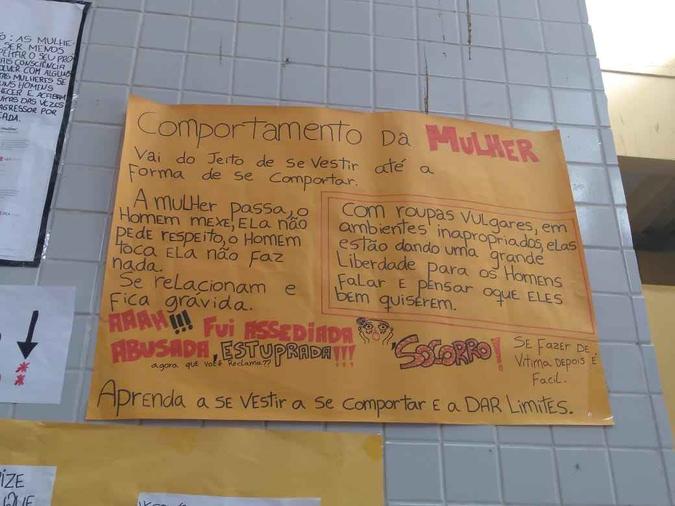 : AS MULHE-
SER MENOS
PEITAR O SEU PRÓ
CONSCIÊNCIA
OLVER COM ALGUM
MULHERES SE
UNS HOMENS
HECER E ACABAM
DAS VEZES
AGRESSOR POR
Comportamento Da MULHER
Vai do Jeito de se Vestir até a
Forma de se Comportar.
A MULHer passa, o
Homem mexe, ELa não
pede respeito, o Homem
toca ELa não Faz
nada.
Se relacionam e
Fica grávida.
Com roupas VULgares, em
ambientes inapropriados, elas
estão dando uma grande
Liberdade para os Homens
Falar e Pensar oque ELES
bem quiserem.
AAAH!!! Fui ASSEDIADA
ABUSADA, ESTUPRADA!!!
agora que você Reclama??
SOCORRO!
SE FAZER DE
Vitima Depois é
Facil.
Aprenda a se Vestir a se Comportar E a DAR Limites.
IZE
QUE